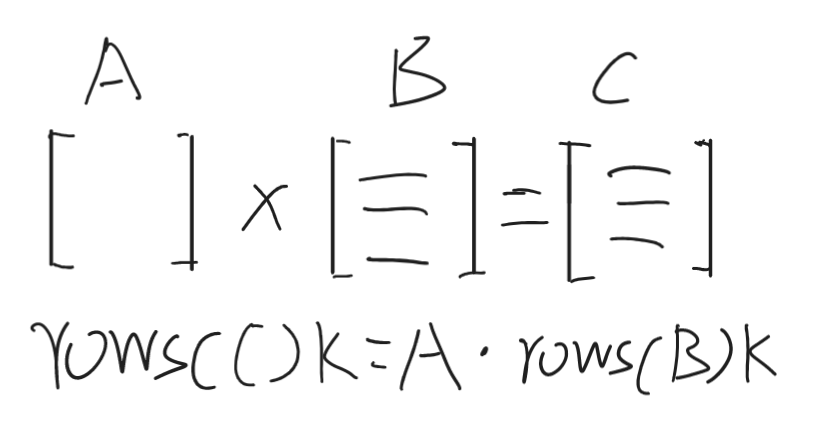 A B C
[ ] × [ ] = [ ]
rows(C)K=A·rows(B)K